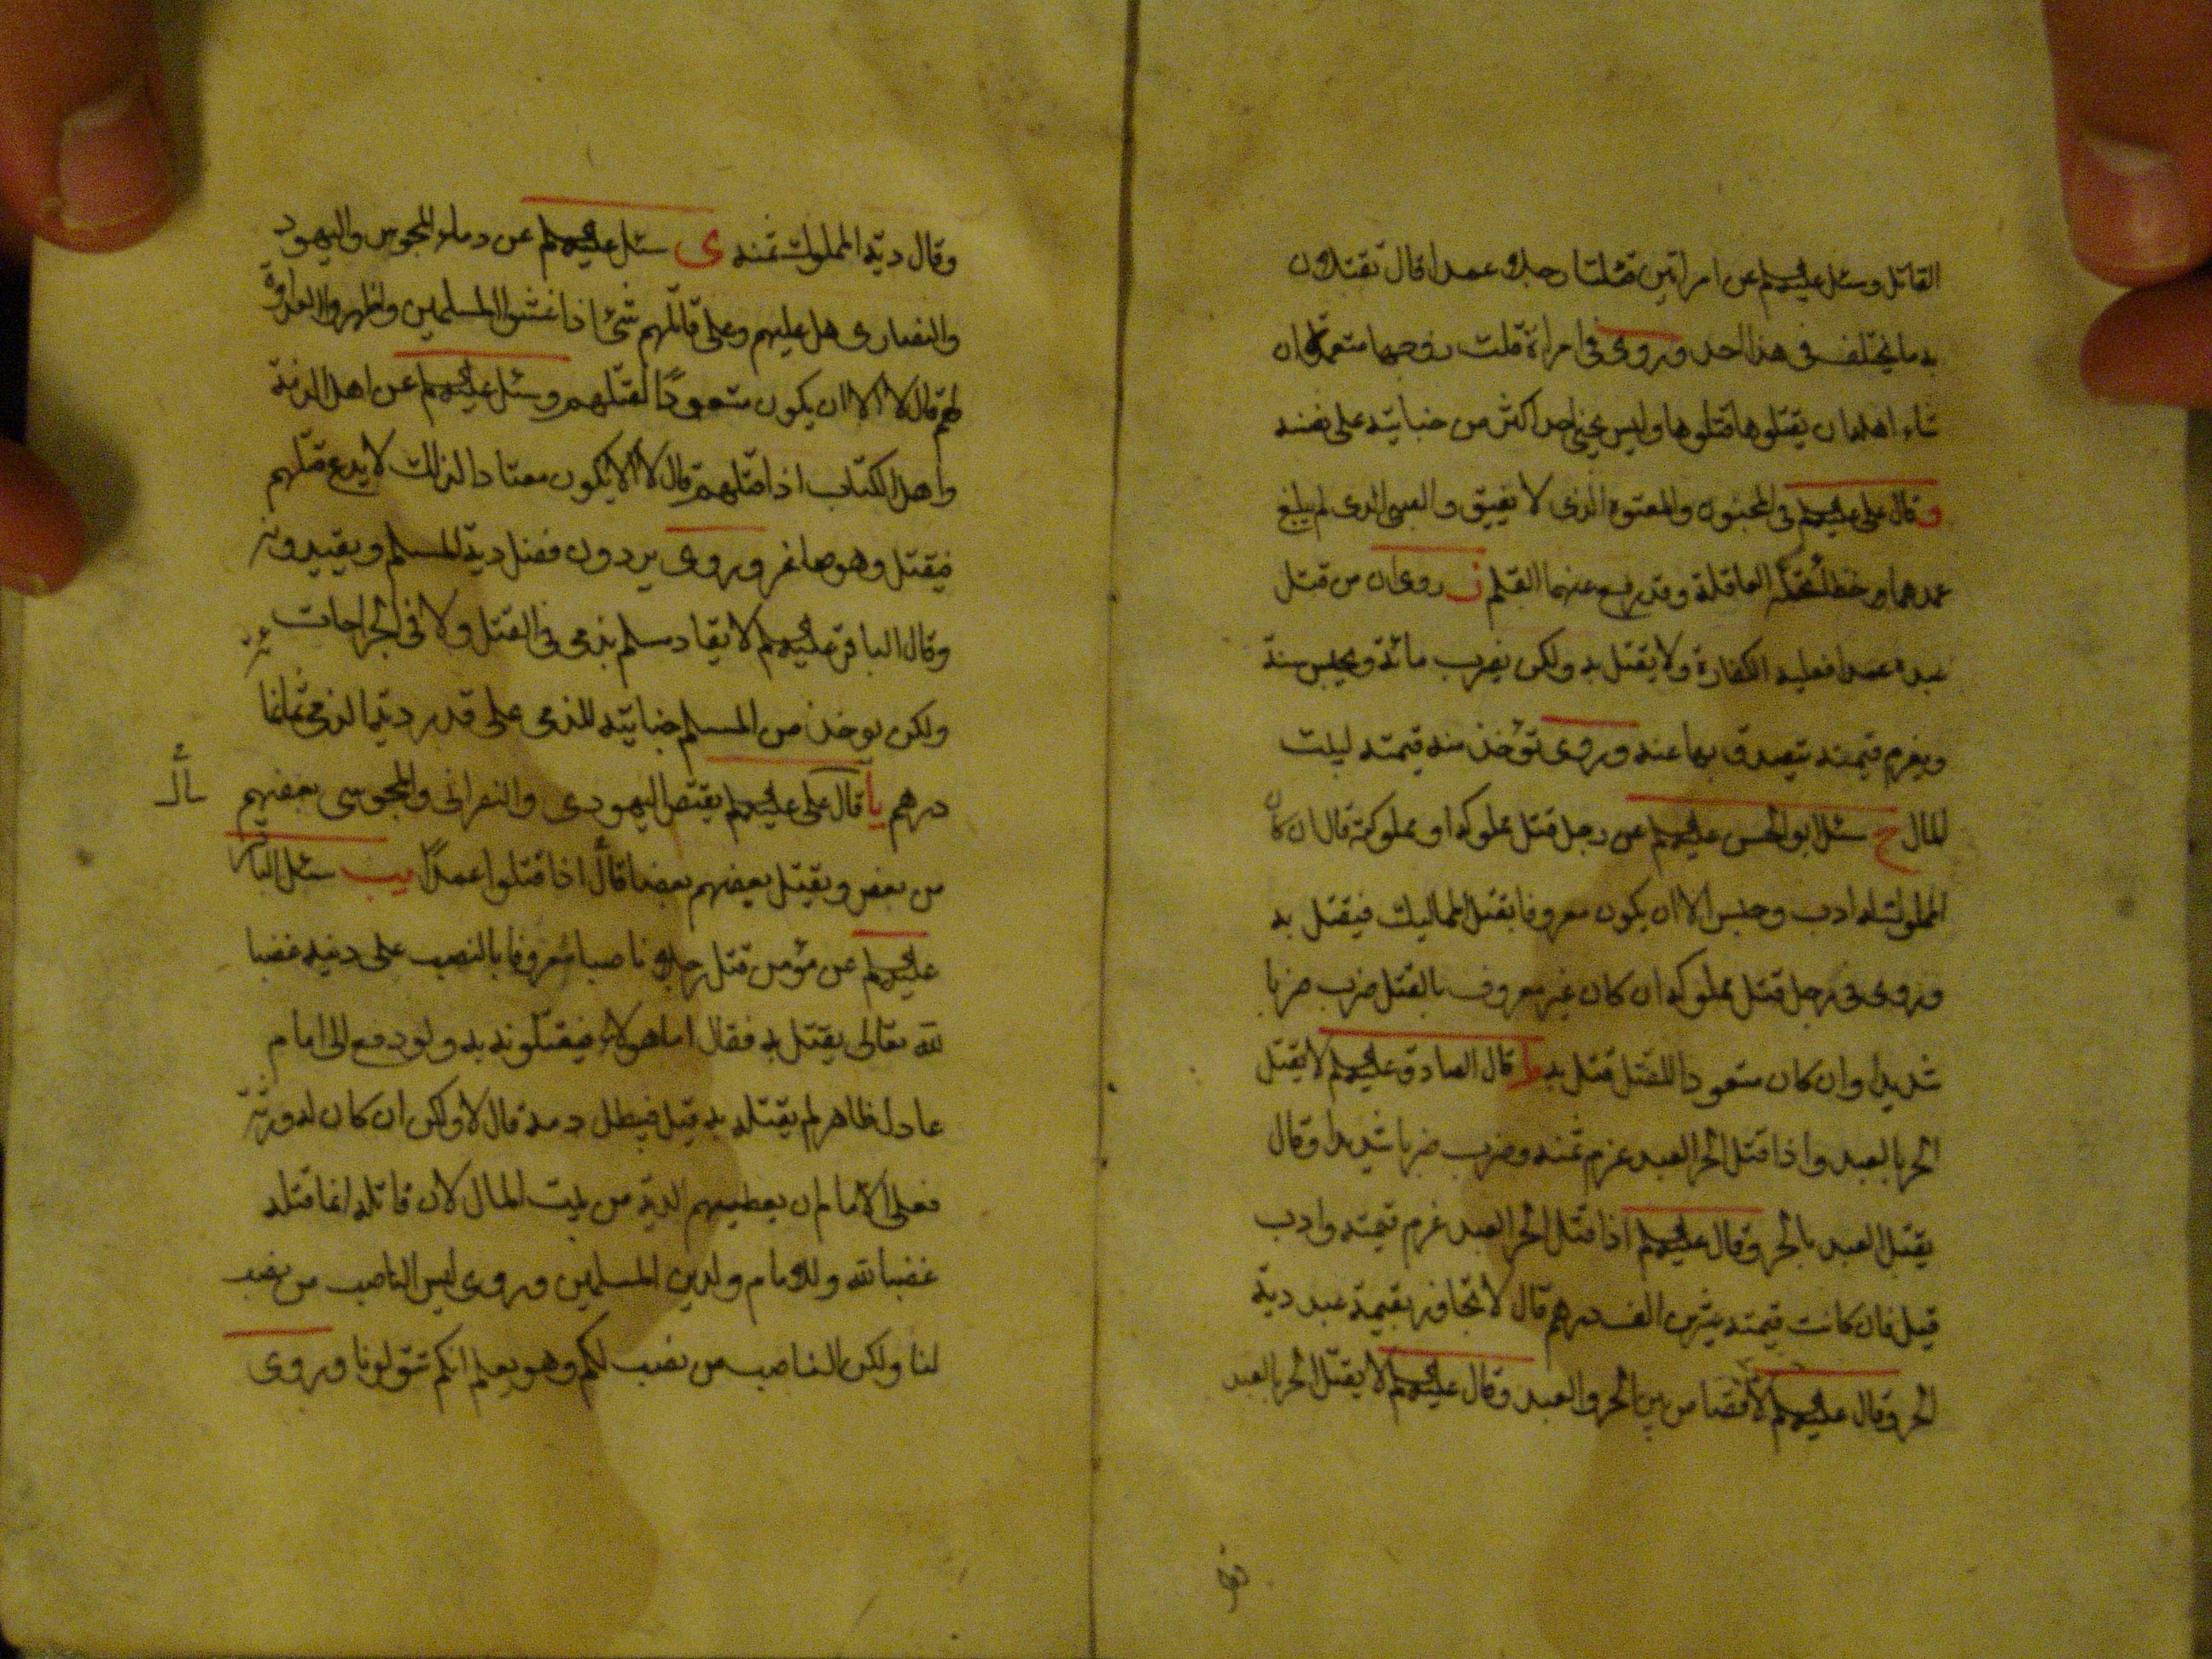 القاتل وسئل عليهم عن امراتين قتلتا رجلا عمدا قال تقتلان
به ما يختلف في هذا احد وروى في امراة قتلت زوجها متعمدة ان
شاء اهله ان يقتلوها قتلوها وليس يجنى احد اكثر من جنايته على نفسه
و قال على عليهم في المجنون والمعتوه الذى لا يفيق والصبى الذى لم يبلغ
عمدهما وخطا تحمله العاقلة وقد رفع عنهما القلم ز روى ان من قتل
عبده عمدا فعليه الكفارة ولا يقتل به ولكن يضرب مائة ويحبس سنة
ويغرم قيمته يتصدق بها عنه وروى تؤخذ منه قيمته لبيت
المال ح سئل ابو الحسن عليهم عن رجل قتل مملوكه او مملوكته قال ان كان
المملوك له ادب وحبس الا ان يكون معروفا بقتل المماليك فيقتل به
وروى في رجل قتل مملوكه ان كان غير معروف بالقتل ضرب ضربا
شديدا وان كان متعودا للقتل قتل به ط قال الصادق عليهم لا يقتل
الحر بالعبد واذا قتل الحر العبد غرم ثمنه وضرب ضربا شديدا وقال
يقتل العبد بالحر وقال عليهم اذا قتل الحر العبد غرم قيمته وادب
قيل فان كانت قيمته عشرين الف درهم قال لا تجاوز بقيمة عبد دية
الحر وقال عليهم لا قصاص بين الحر والعبد وقال عليهم لا يقتل الحر بالعبد
وقال دية المملوك ثمنه ى سئل عليهم عن دماء المجوس واليهود
والنصارى هل عليهم وعلى قاتلهم شئ اذا غشوا المسلمين واظهروا العداوة
لهم قال لا الا ان يكون متعودا لقتلهم وسئل عليهم عن اهل الذمة
واهل الكتاب اذا قتلهم قال لا الا يكون معتادا لذلك لا يدع قتلهم
فيقتل وهو صاغر وروى يردون فضل دية المسلم ويقيدونه
وقال الباقر عليهم لا يقاد مسلم بذمى في القتل ولا في الجراحات
ولكن يوخذ من المسلم جنايته للذمى على قدر دية الذمى ثمانمائة
درهم يا قال على عليهم يقتص اليهودى والنصرانى والمجوسى بعضهم
من بعض ويقتل بعضهم بعضا قال اذا قتلوا عمدا يب سئل الباقر
عليهم عن مؤمن قتل رجلا ناصبا معروفا بالنصب على دينه غضبا
لله تعالى يقتل به فقال اما هولاء فيقتلونه به ولو دفع الى امام
عادل ظاهر لم يقتله به قيل فيبطل دمه قال لا ولكن ان كان له ورثة
فعلى الامام ان يعطيهم الدية من بيت المال لان قاتله انما قتله
غضبا لله وللامام ولدين المسلمين وروى ليس الناصب من نصب
لنا ولكن الناصب من نصب لكم وهو يعلم انكم تتولونا وروى